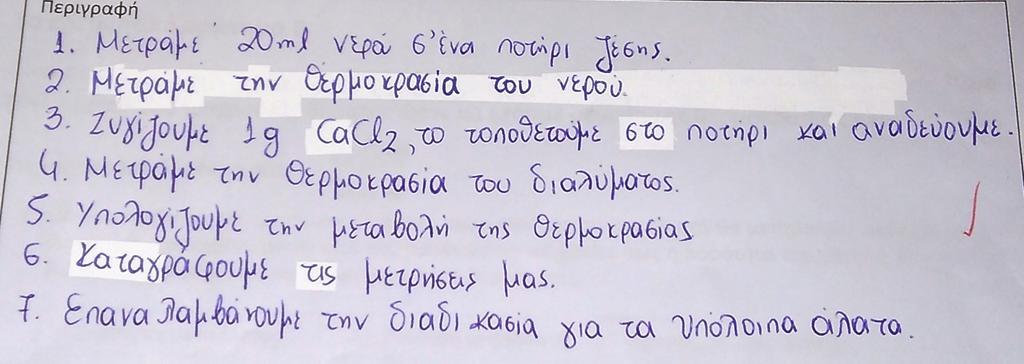 Περιγραφή
1. Μετράμε 20ml νερό σ' ένα ποτήρι ζέσης.
2. Μετράμε την θερμοκρασία του νερού.
3. Ζυγίζουμε 1g CaCl2, το τοποθετούμε στο ποτήρι και αναδεύουμε.
4. Μετράμε την θερμοκρασία του διαλύματος.
5. Υπολογίζουμε την μεταβολή της θερμοκρασίας
6. Καταγράφουμε τις μετρήσεις μας.
7. Επαναλαμβάνουμε την διαδικασία για τα υπόλοιπα άλατα.